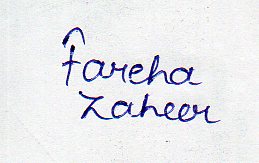 Fareha
Zaheer